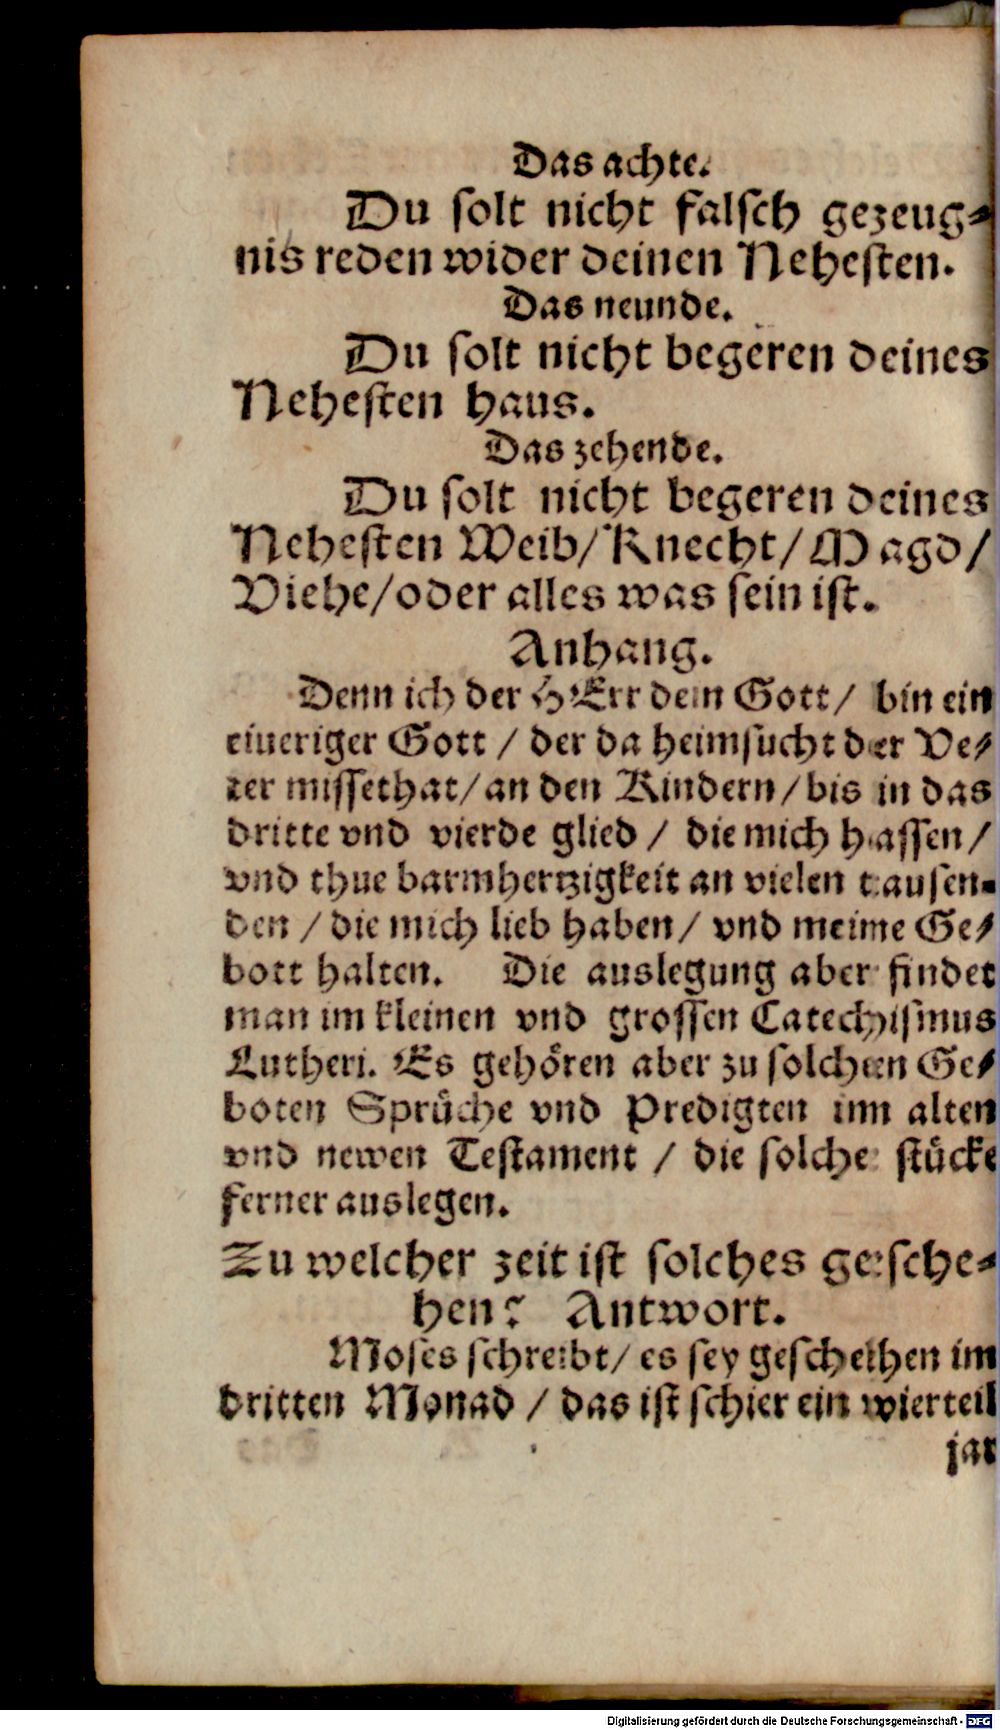 Das achte.
Du solt nicht falsch gezeug⸗
nis reden wider deinen Nehesten.
Das neunde.
Du solt nicht begeren deines
Nehesten haus.
Das zehende.
Du solt nicht begeren deines
Nehesten Weib/ Knecht/ Magd/
Viehe/ oder alles was sein ist.
Anhang.
Denn ich der HErr dein Gott/ bin ein
eiueriger Gott / der da heimsucht der Ve⸗
ter missethat/ an den Kindern/ bis in das
dritte vnd vierde glied / die mich hassen/
vnd thue barmhertzigkeit an vielen tausen⸗
den / die mich lieb haben/ vnd meine Ge⸗
bott halten. Die auslegung aber findet
man im kleinen vnd grossen Catechismus
Lutheri. Es gehören aber zu solchen Ge⸗
boten Sprüche vnd Predigten inn alten
vnd newen Testament / die solche stücke
ferner auslegen.
Zu welcher zeit ist solches gesche⸗
hen? Antwort.
Moses schreibt/ es sey geschehen im
dritten Monad / das ist schier ein vierteil
jar
Digitalisierung gefördert durch die Deutsche Forschungsgemeinschaft - DFG